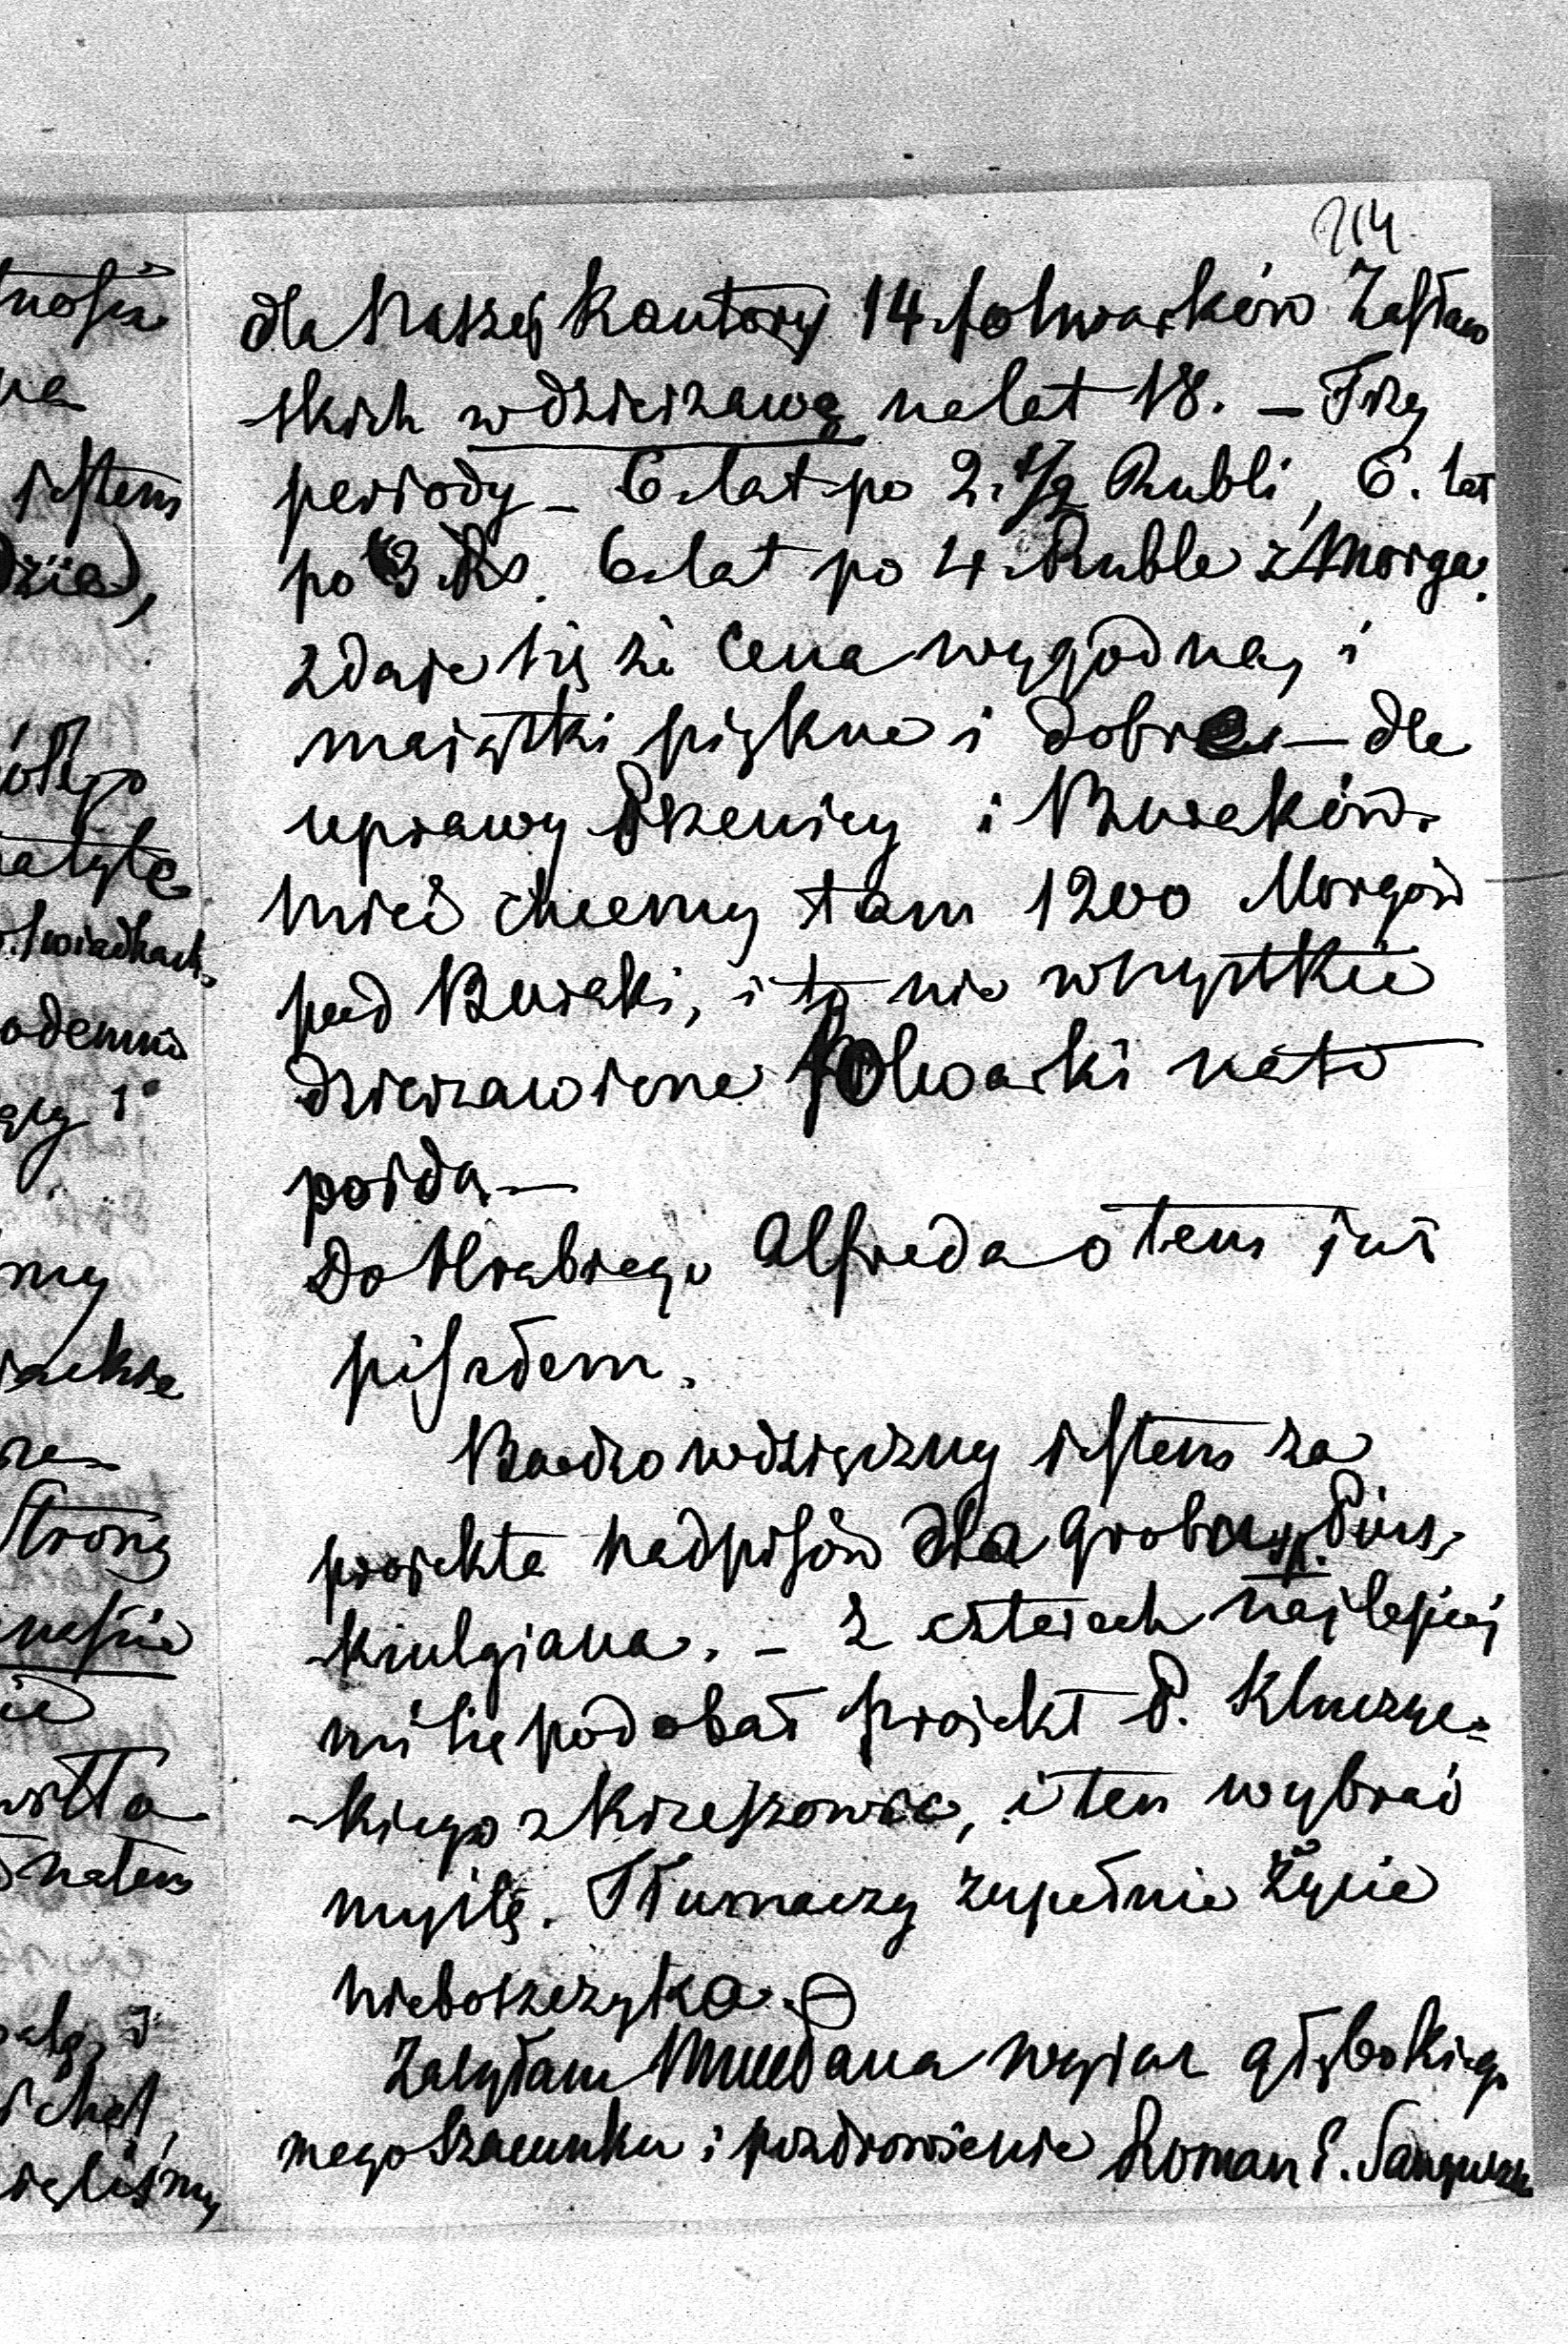 214
dla Naszej Kantory 14 folwarków Zasław
skich w dzierzawę na lat 18. – Trzy
periody – 6 lat po 2. 1/2 Rubli, 6. lat
po 3 Rs. 6 lat po 4 Ruble z Morga.
zdaie się że cena wygodna, i
maiątki piękne i dobre – dla
uprawy Pszenicy i Buraków.
Mieć chcemy tam 1200 Morgów
pod Buraki, i to nie wszystkie
dzierzawione folwarki na to
poidą –
Do Hrabiego Alfreda o tem iuż
pisałem.
Bardzo wdzięczny iestem za
proiekta nadpisów dla grobu
– Z czterech najlepiej
mi się podobał proiekt P. Kluczyc-
-kiego z Krzeszowic, i ten wybrać
myślę. Tłumaczy zupełnie życie
nieboszczyka.
Załączam wyraz głębokiego
mego szacunku i pozdrowienie Roman S. Sanguszko
nosia
na
iestem
dzie),
ólego
świadkach
odemnie
1°
my
Strony
ie
natem